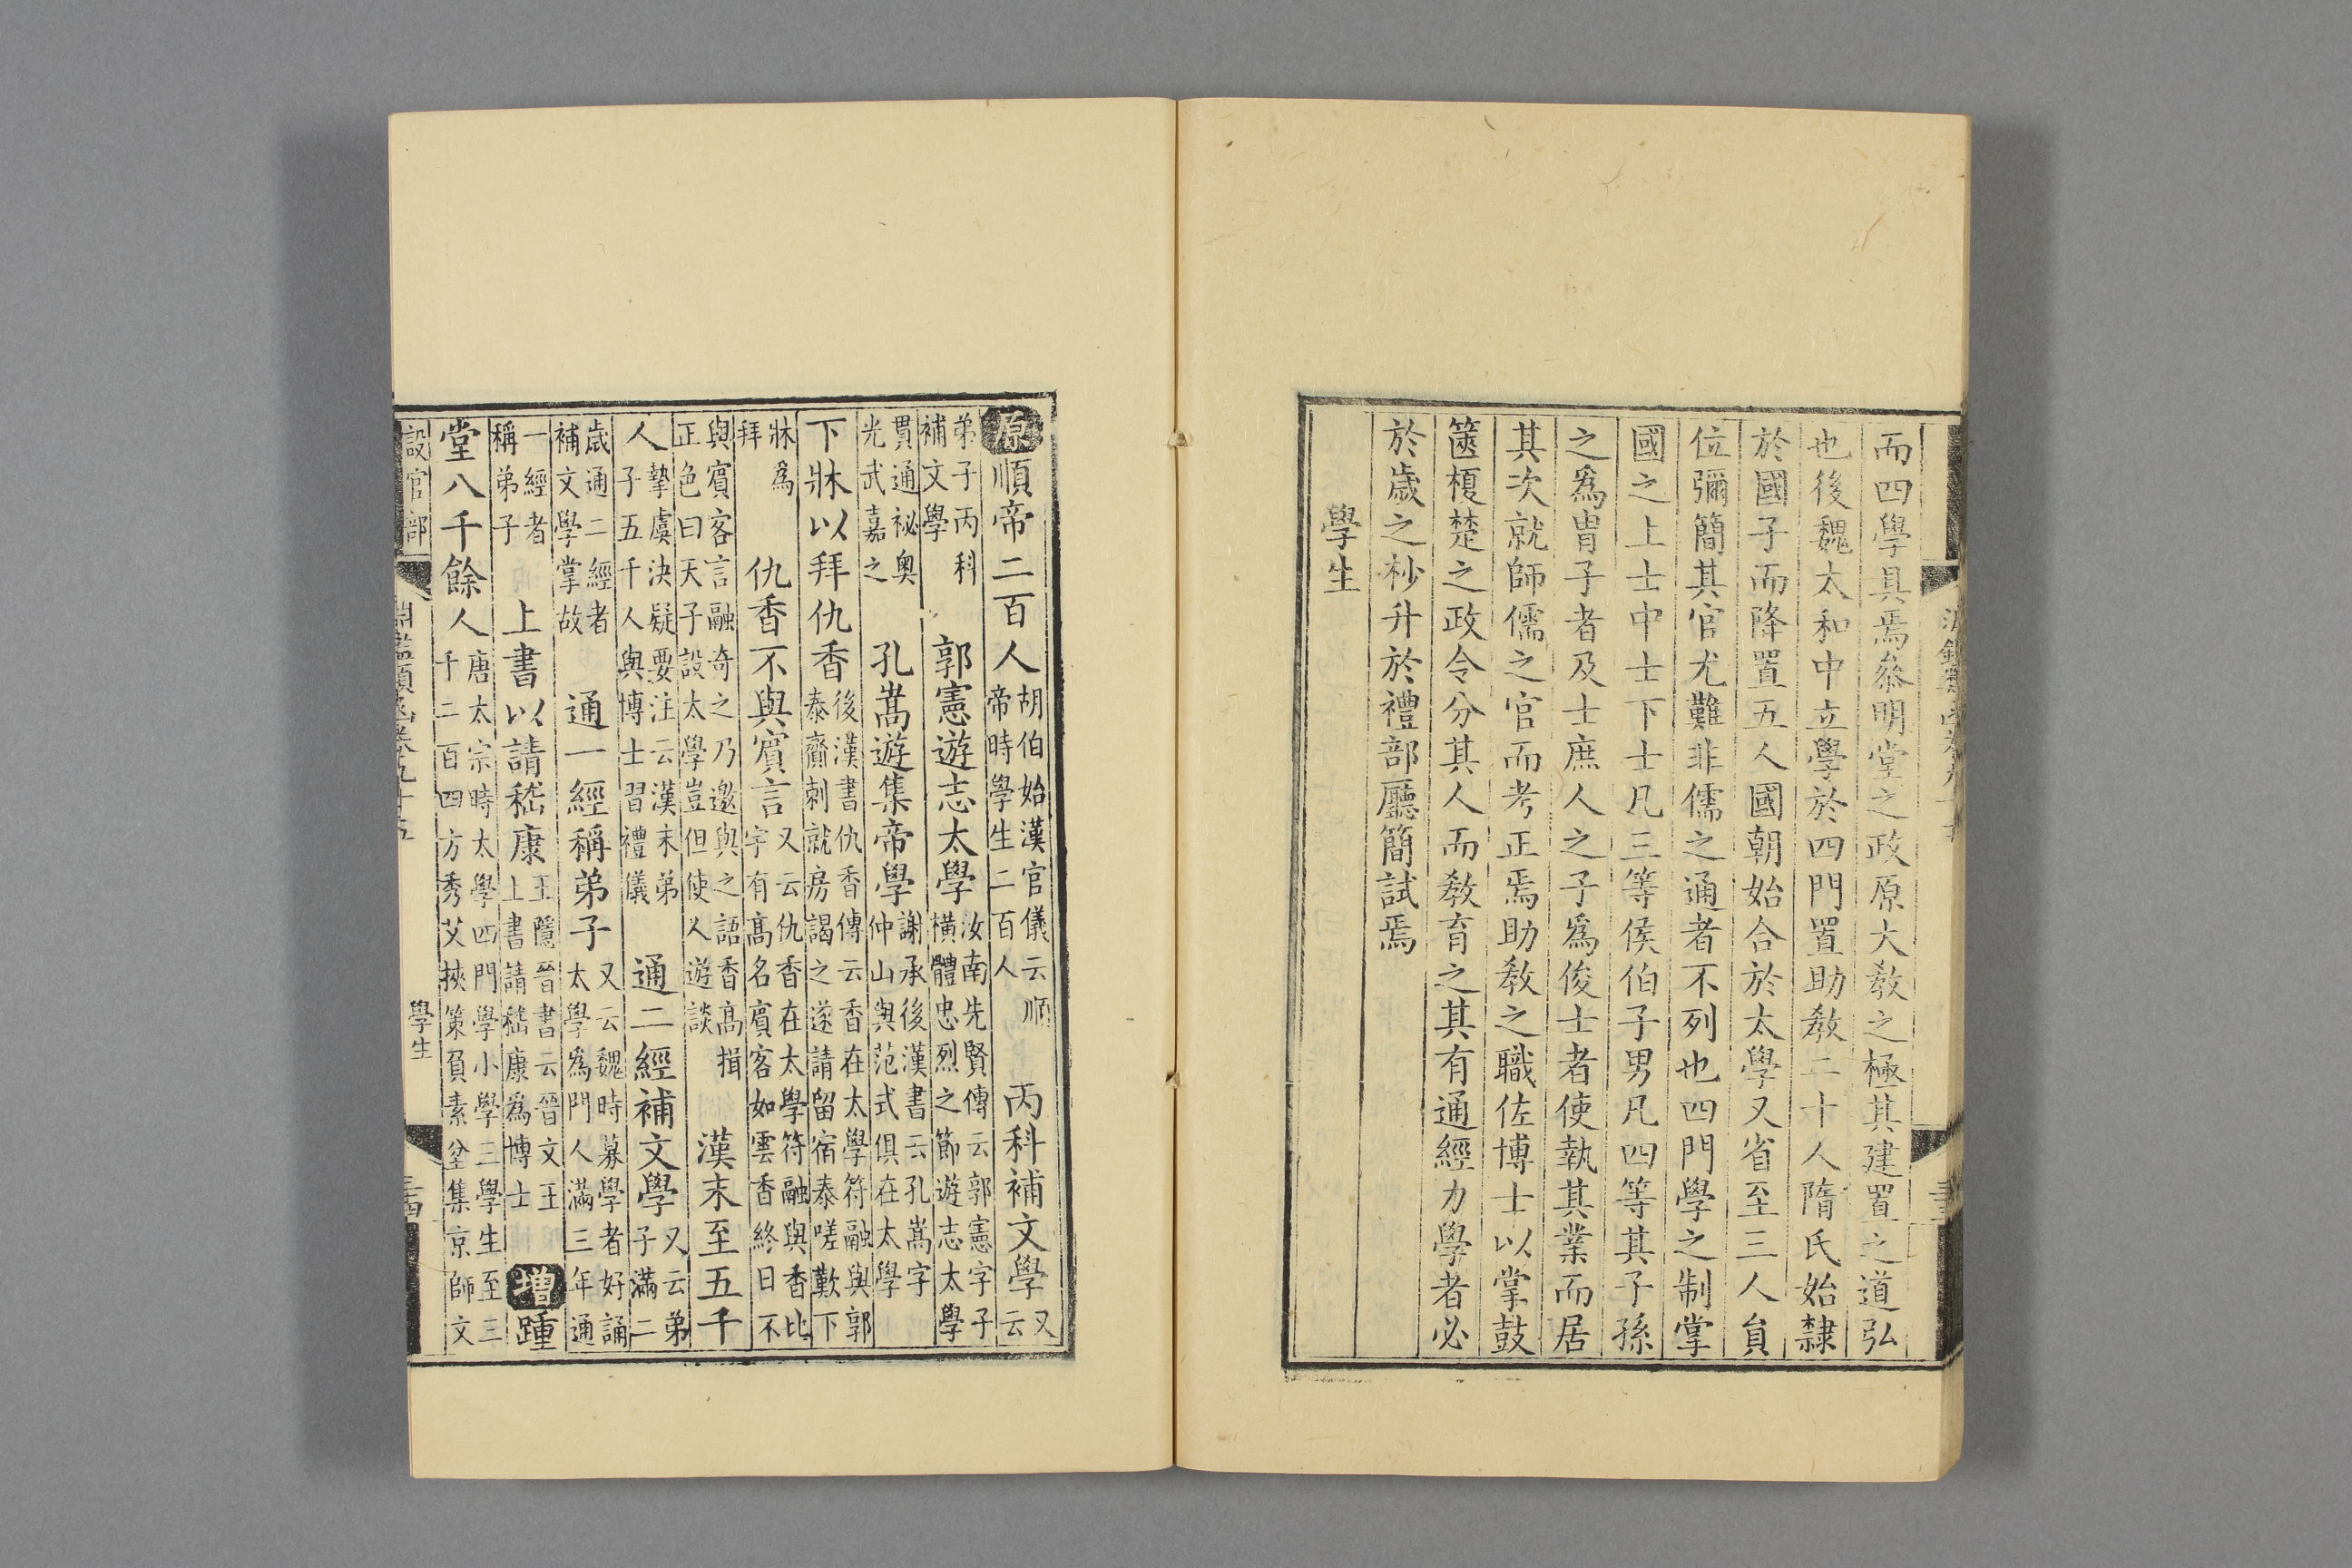 而四學具焉叅明堂之政原大敎之極其建置之道弘
也後魏太和中立學於四門置助敎二十人隋氏始隸
於國子而降置五人國朝始合於太學又省至三人貟
位彌簡其官尤難非儒之通者不列也四門學之制掌
國之上士中士下士凡三等侯伯子男凡四等其子孫
之爲胄子者及士庶人之子爲俊士者使執其業而居
其次就師儒之官而考正焉助敎之職佐博士以掌鼓
篋榎楚之政令分其人而敎育之其有通經力學者必
於歲之杪升於禮部廳簡試焉
學生
原順帝二百人胡伯始漢官儀云順帝時學生二百人丙科補文學又云
弟子丙科補文學郭憲遊志太學汝南先賢傳云郭憲字子橫體忠烈之節遊志太學
貫通祕奧光武嘉之孔嵩遊集帝學謝承後漢書云孔嵩字仲山與范式俱在太學
下牀以拜仇香後漢書仇香傳云香在太學符融與郭泰齎刺就房謁之遂請留宿泰嗟歎下
牀爲拜仇香不與賓言又云仇香在太學符融與香比字有髙名賓客如雲香終日不
與賓客言融奇之乃邀與之語香髙揖正色曰天子設太學豈但使人遊談漢末至五千
人摯虞決疑要注云漢末弟子五千人與博士習禮儀通二經補文學又云弟子滿二
歲通二經者補文學掌故通一經稱弟子又云魏時募學者好誦太學爲門人滿三年通
一經者稱弟子上書以請嵇康王隱晉書云晉文王上書請嵇康爲博士增踵
堂八千餘人唐太宗時太學四門學小學三學生至三千二百四方秀艾挾策負素坌集京師文
設官部 學生